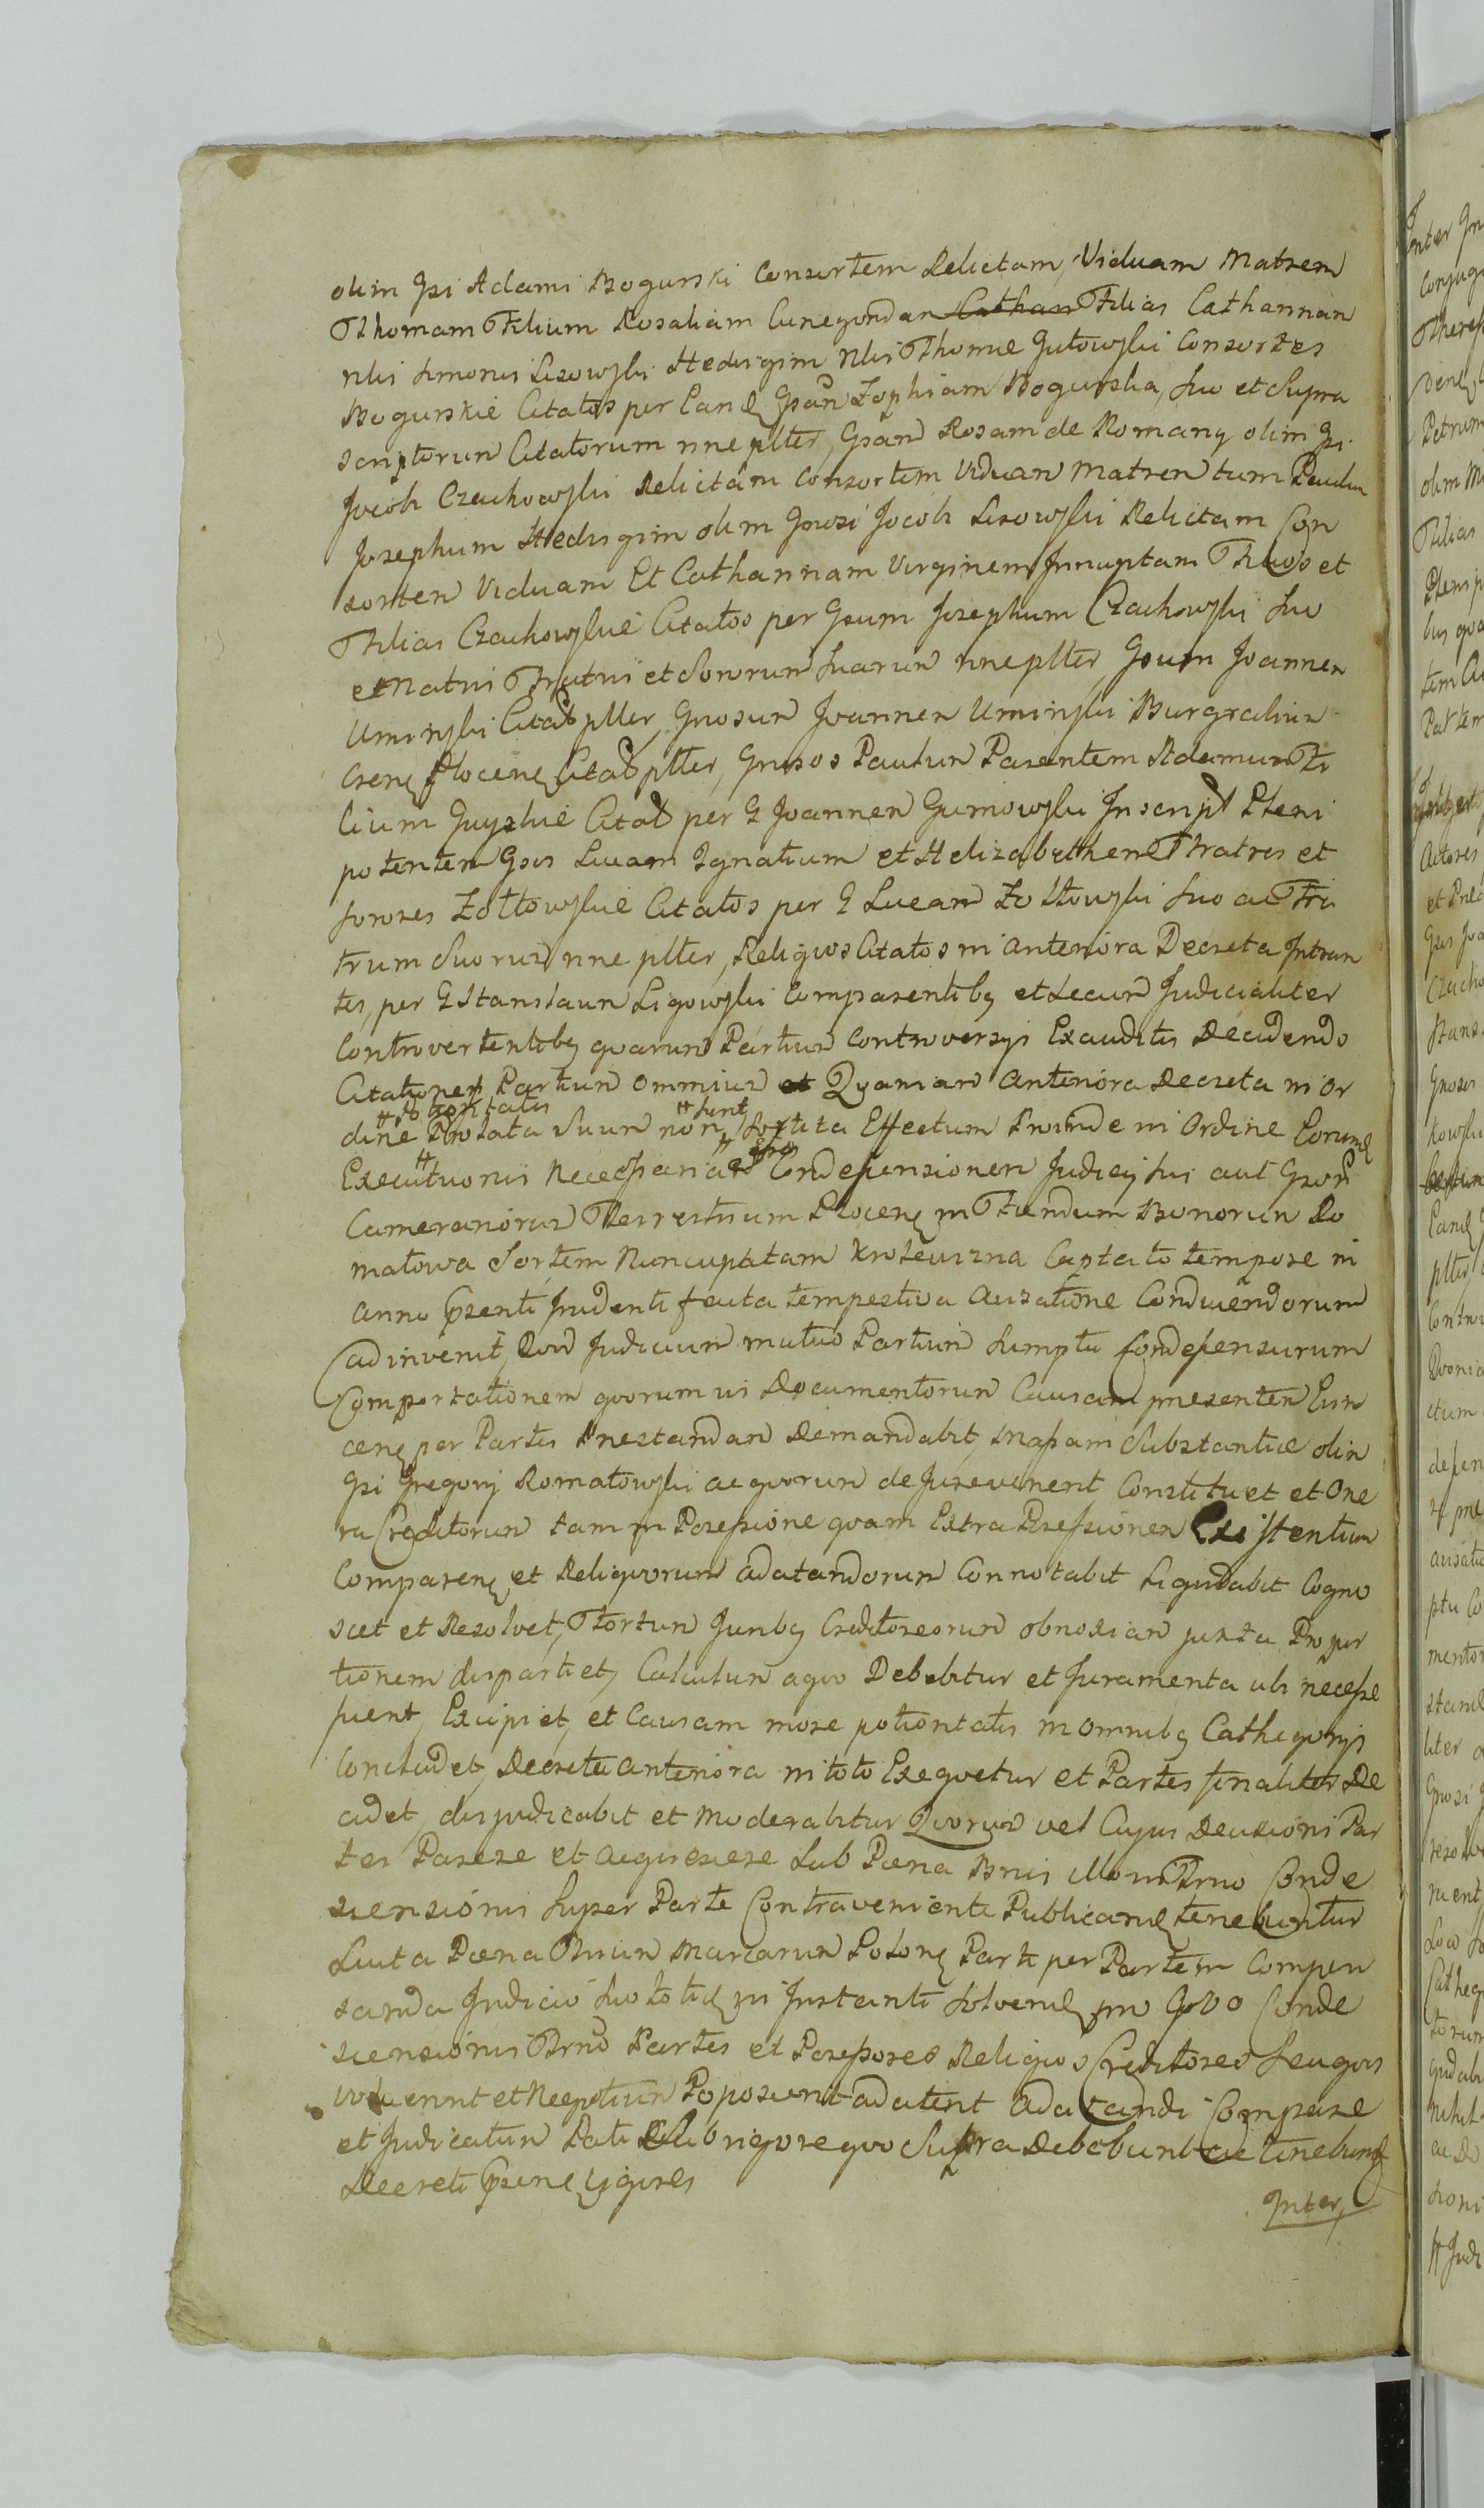 olim Gsi Adami Bogurski Consortem Relictam, Viduam Matrem
Thomam Filium Rosaliam Cunegundan Cathan Filias Cathannan
Nlis Simonis Lisowski Hedvigim Nlis Thomæ Gutowski Consortes
Bogurskie Citatos per Eand Gsan Zophiam Bogurska, suo et Supra
scriptorun Citatorum nne plter, Gsand Rosam de Romany olim Gsi
Jocob Czachowski Relictam Consortem Viduan Matren tum Paulun
Josephum Hedvigim olim Gnosi Jocob Lisowski Relictam Con
sorten Viduam Et Cathannam Virginem Innuptam Filios et
Filias Czachowskie Citatos per Gsum Josephum Czachowski suo
et Matris Fratris et Sororun suarun nne plter, Gsum Joannen
Uminski Citat plter, Gnosun Joannen Uminski Burgrabiun
Csen Plocen Citat plter, Gnosos Paulun Parentem Adamun Fi
lium Guyskie Citat per G Joannen Gumowski Inscript Pleni
potenten Gsos Lucam Ignatium et Helizabethen Fratres et
sorores Zołtowskie Citatos per G Lucan Zołtowski suo ac Fra
trum Suorun nne plter, Religuos Citatos in anteriora Decreta Intran
tes, per G Stanislaun Ligowski Comparentibg et secun Judicialiter
Controvertentibg quarun Partiun Controversys Exauditis Decidendo
Citationem Partiun omniun et Quaniam anteriora Decreta in or
# Potioritatis # sunt
dine Prolata Suun non sortita Effectum Proinde in Ordine Eorund
Executionis Necessaria Condescensionen Judicij sui aut Gsor
Camerariorun Terrestrium Plocen in Fundum Bonorun Ro
matowa Sortem Nuncupatam Krolewizna Captato tempore in
anno Psenti Prudenti facta tempestiva Avisatione Conducendorum
adinvenit, Quod Judicium mutuo Partiun sumptu Condescensurum
Comportationem quorumvis Documentorun Causam presenten Con
cen per Partes Prestandan Demandabit, Massam Substantiæ olin
Gsi Gregorij Romatowski ac quorun de Jure venerit Constituet et One
ra Creditorun tam in Possessione quam Extra Possessionen Existentium
Comparen et Reliquorun adcitandorun Connotabit Liquidabit Cogno
scet et Resolvet, Fortun Junbg Creditoreorun obnoxian juxta Propor
tionem dispartiet, Calculun a quo Debebitur et Juramenta ubi necesse
fuerit, Excipiet, et Causam more potioritatis in omnibg Cathegorijs
Concludet, Decreta anteriora in toto Exequetur et Partes finaliter De
cidet, disjudicabit et Moderabitur Quorun vel Cujus Decisioni Par
tes Parere et acquiescere sub Pœna Bnis Conde
scensionis super Parte Contraveniente Publicand tenebuntur
Luita Pœna Triun Marcarun Polon Parti per Partem Compen
sanda Judicio suo in Instanti solvend pro Conde
scensionis Trno Partes et Possessores Reliquos Creditores seu quos
voluerint et Neegotiun Poposcerit adcitent adcitandi Compare
et Judicatun Pati sub rigore quo Supra Debebunt ac tinebunt
Decreti Psen vigore
Inter